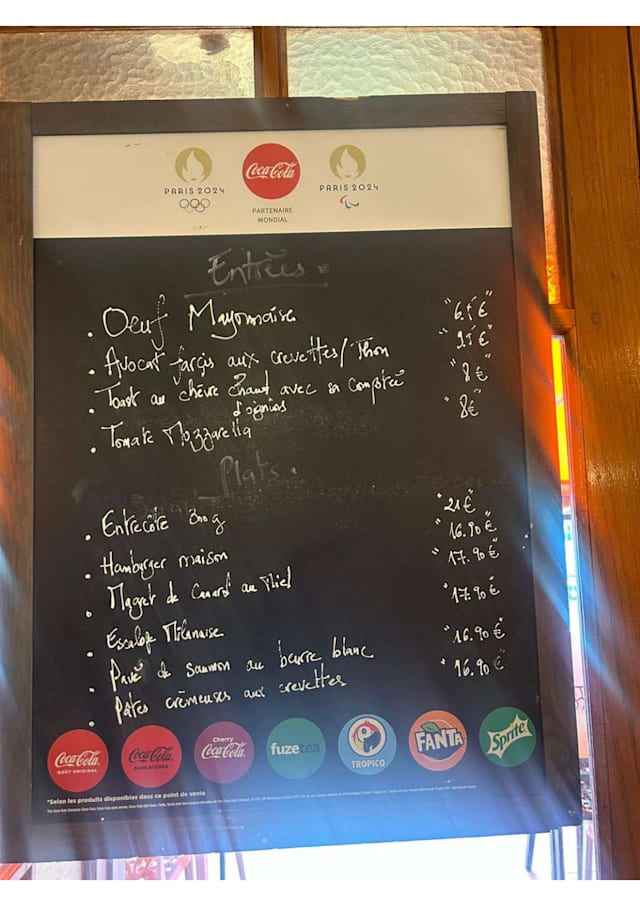 PARIS 2024
Coca-Cola
PARIS 2024
PARTENAIRE
MONDIAL
Entrées
. Oeuf Mayonnaise "6.5€"
. Avocat farçis aux crevettes/Thon "9.5€"
. Toast au chèvre chaud avec sa compotée "8€"
d'oignios
. Tomate Mozzarella "8€"
Plats.
. Entrecôte 300g "21€"
. Hamburger maison "16.90€"
. Magret de Canard au Miel "17.90€"
. Escalope Milanaise "17.90€"
. Pavé de saumon au beurre blanc "16.90€"
. Pâtes crèmeuses aux crevettes "16.90€"
Coca-Cola
GOÛT ORIGINAL
Coca-Cola
SANS SUCRES
Cherry
Coca-Cola
fuzetea
TROPICO
FANTA
Sprite
*Selon les produits disponibles dans ce point de vente